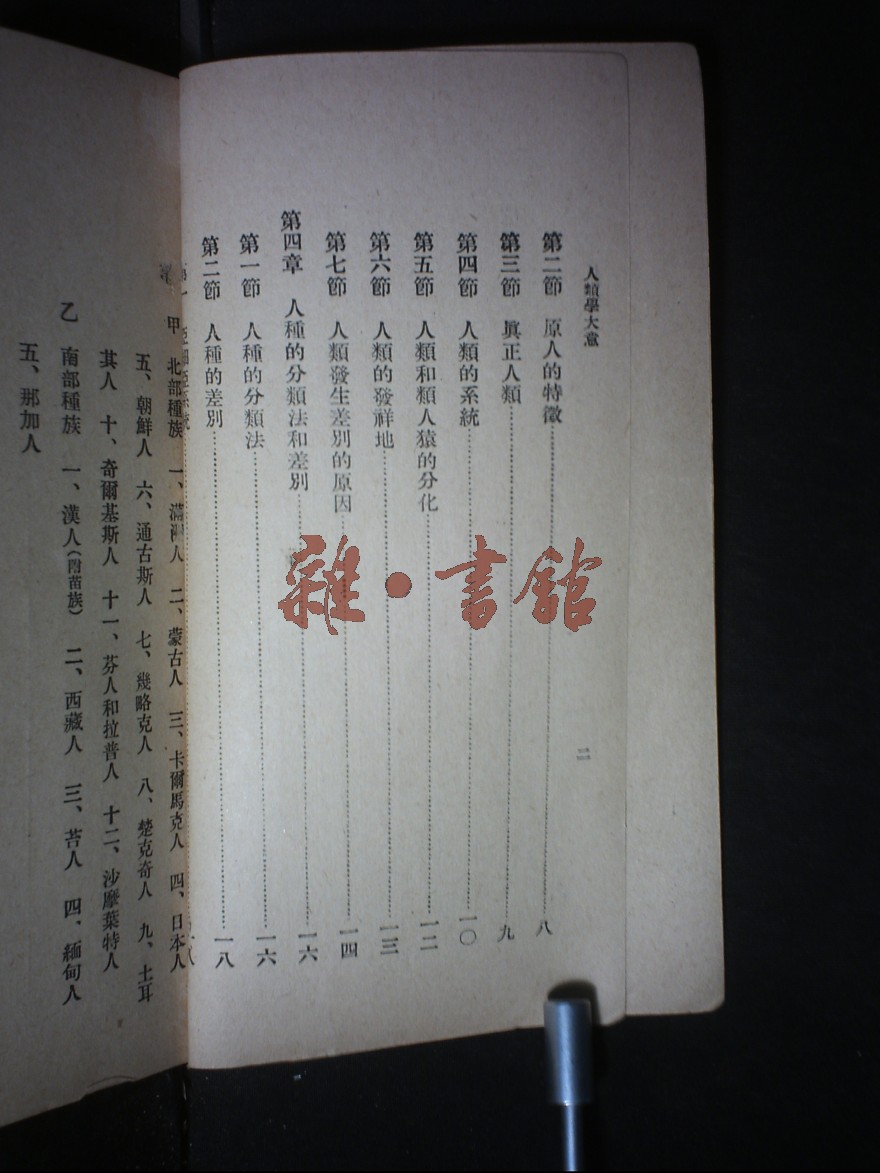 人類學大意
二
第二節 原人的特徵……八
第三節 眞正人類……九
第四節 人類的系統……一〇
第五節 人類和類人猿的分化……一二
第六節 人類的發祥地……一三
第七節 人類發生差別的原因……一四
第四章 人種的分類法和差別……一六
第一節 人種的分類法……一六
第二節 人種的差別……一八
甲 北部種族 一、滿洲人 二、蒙古人 三、卡爾馬克人 四、日本人
五、朝鮮人 六、通古斯人 七、幾略克人 八、楚克奇人 九、土耳
其人 十、奇爾基斯人 十一、芬人和拉普人 十二、沙摩葉特人
乙 南部種族 一、漢人（附苗族） 二、西藏人 三、苔人 四、緬甸人
五、那加人
雜·書館